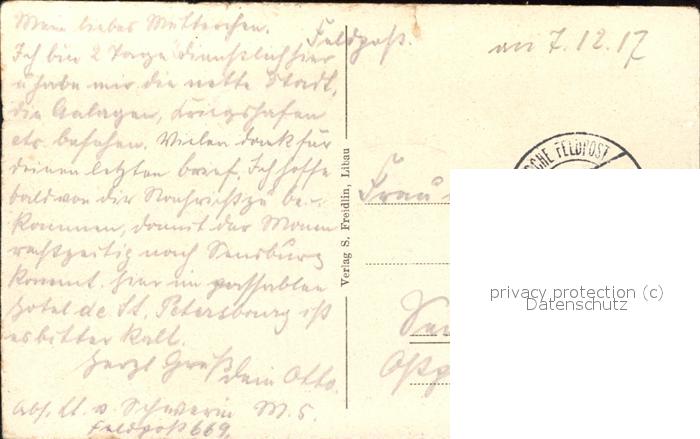 Mein liebes Mütterchen.
Ich bin 2 Tage dienstlich hier
u. habe mir die nette Stadt,
die Anlagen, Kriegshafen
etc. besehen. Vielen Dank für
deinen letzten Brief. Ich hoffe
bald von dir Nachricht zu be-
kommen, damit der Mann
rechtzeitig nach Sensburg
kommt. Hier im
Hotel de St. Petersbourg ist
es bitter kalt.
Herzl. Gruß
dein Otto.
Abs. Lt. v. Schwerin M. S.
Feldpost 669.
Verlag S. Freidlin, Libau
Feldpost.
an 7.12.17
SCHE FELDPOST
Frau
Sen
Ostp
privacy protection (c)
Datenschutz